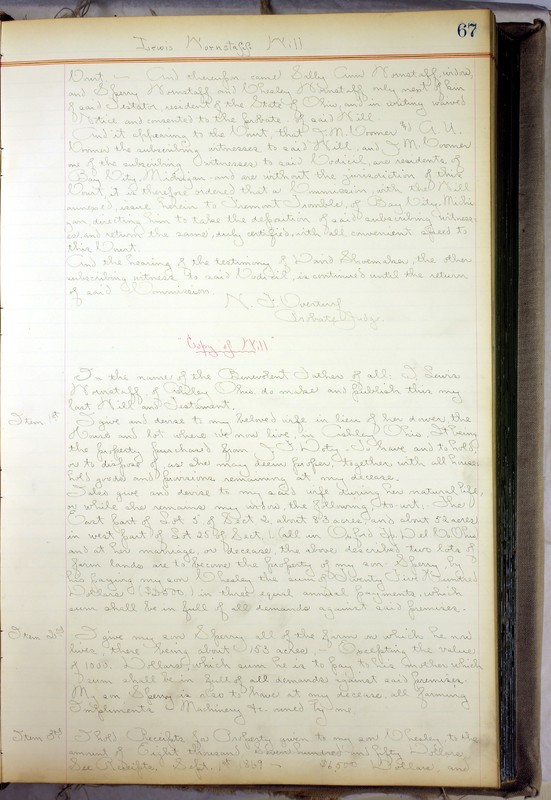 67
Lewis Wornstaff Will
Court. — And thereupon came Silby Ann Wornstaff, widow,
and Sherry Wornstaff and Wheeley Wornstaff only next of kin
of said Testator, resident of the State of Ohio, and in writing waived
Notice and consented to the probate of said Will.
And it appearing to the Court, that J. M. Voomer & A. U.
Voomer the subscribing witnesses to said Will, and J. M. Voomer
one of the subscribing witnesses to said Codicil, are residents of
Bay City, Michigan and are without the jurisdiction of this
Court, it is therefore ordered that a Commission, with the Will
annexed, issue herein to Fremont Tromble, of Bay City, Michi-
gan, directing him to take the deposition of said subscribing witness-
es, and return the same, duly certified, with all convenient speed to
this Court.
And the hearing of the testimony of David Shoemaker, the other
subscribing witness to said Codicil, is continued until the return
of said Commission.
N. F. Overturf
Probate Judge.
"Copy of Will"
In the name of the Benevolent Father of all: I Lewis
Wornstaff of Ashley Ohio, do make and publish this my
last Will and Testament.
Item 1st I give and devise to my beloved wife in lieu of her dower the
House and lot where we now live, in Ashley Ohio, It being
the property purchased from Doty, To have and to hold
or to dispose of as she may deem proper, together with all house
hold goods and provisions remaining at my decease.
I also give and devise to my said wife during her natural life,
or while she remains my widow, the following, to wit: The
East part of Lot 5 of Sect 2, about 83 acres, and about 52 acres
in west part of Lot 25 of Sect. 1 (all in Oxford Tp Del Co Ohio
and at her marriage, or decease, the above described two lots of
farm lands are to become the property of my son Sherry, by
his paying my son Wheeley the sum of Twenty Five Hundred
Dollars ($2500.) in three equal annual payments, which
sum shall be in full of all demands against said premises.
Item 2nd I give my son Sherry all of the farm on which he now
lives, there being about 153 acres, — Excepting the value
of 1000. Dollars, which sum he is to pay to his mother which
sum shall be in full of all demands against said premises.
My son Sherry is also to have at my decease, all farming
Impliments – Machinery &c. owned by me.
Item 3rd I hold Receipts for Property given to my son Wheeley, to the
amount of Eight thousand hundred and fifty Dollars
See Receipts, Sept. 1st 1869 — $6,500 Dollars and